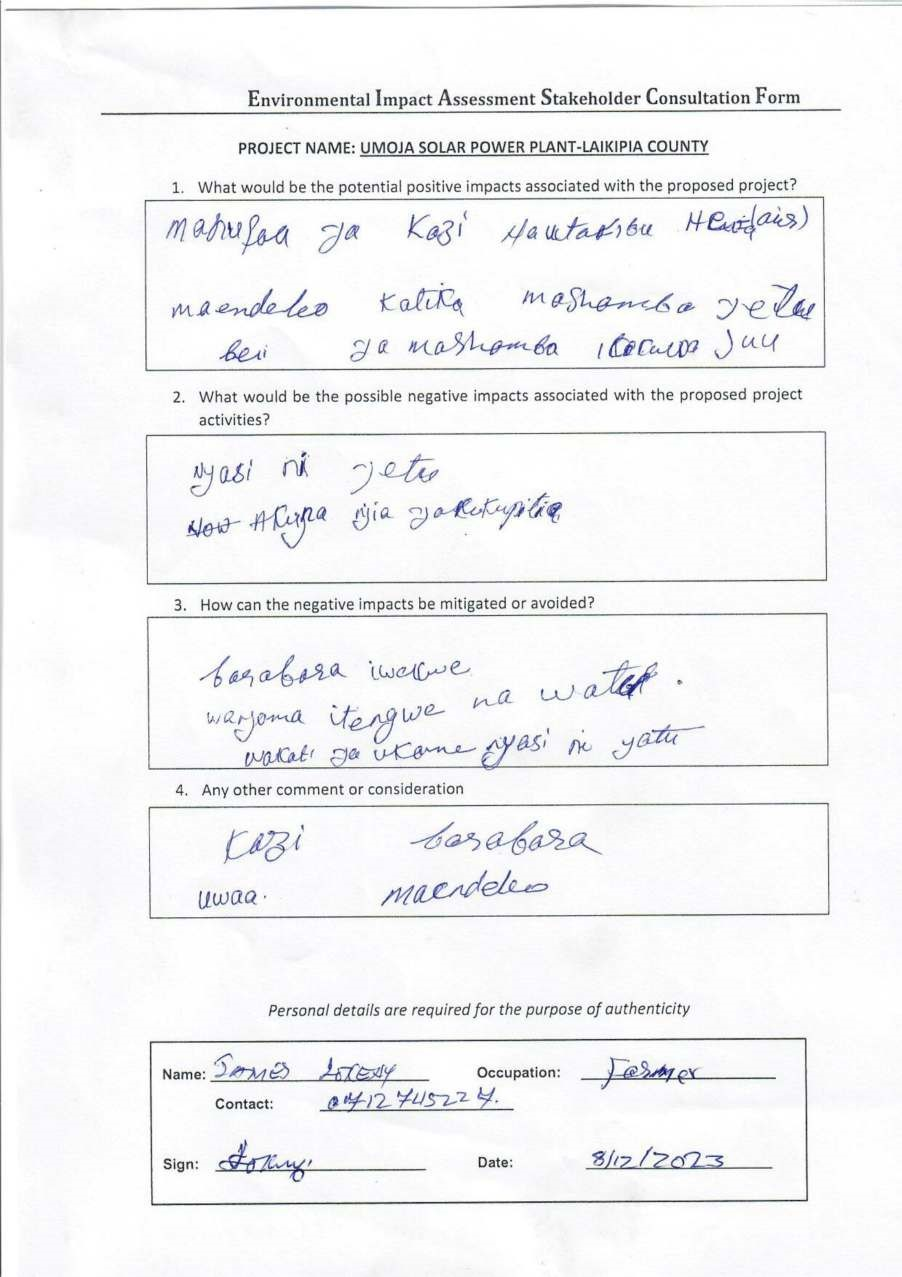 Environmental Impact Assessment Stakeholder Consultation Form
PROJECT NAME: UMOJA SOLAR POWER PLANT-LAIKIPIA COUNTY
1. What would be the potential positive impacts associated with the proposed project?
manufaa ya Kazi
maendeleo Katika mashamba yetu
bei ya mashamba Juu
2. What would be the possible negative impacts associated with the proposed project
activities?
Nyasi ni yetu
njia
3. How can the negative impacts be mitigated or avoided?
barabara iwekwe
itengwe na
wakati ya ukame nyasi ni yatu
4. Any other comment or consideration
Kazi barabara
uwaa. maendeleo
Personal details are required for the purpose of authenticity
Name: JAMES Occupation: Farmer
Contact: 0712745227.
Sign: Date: 8/12/2023